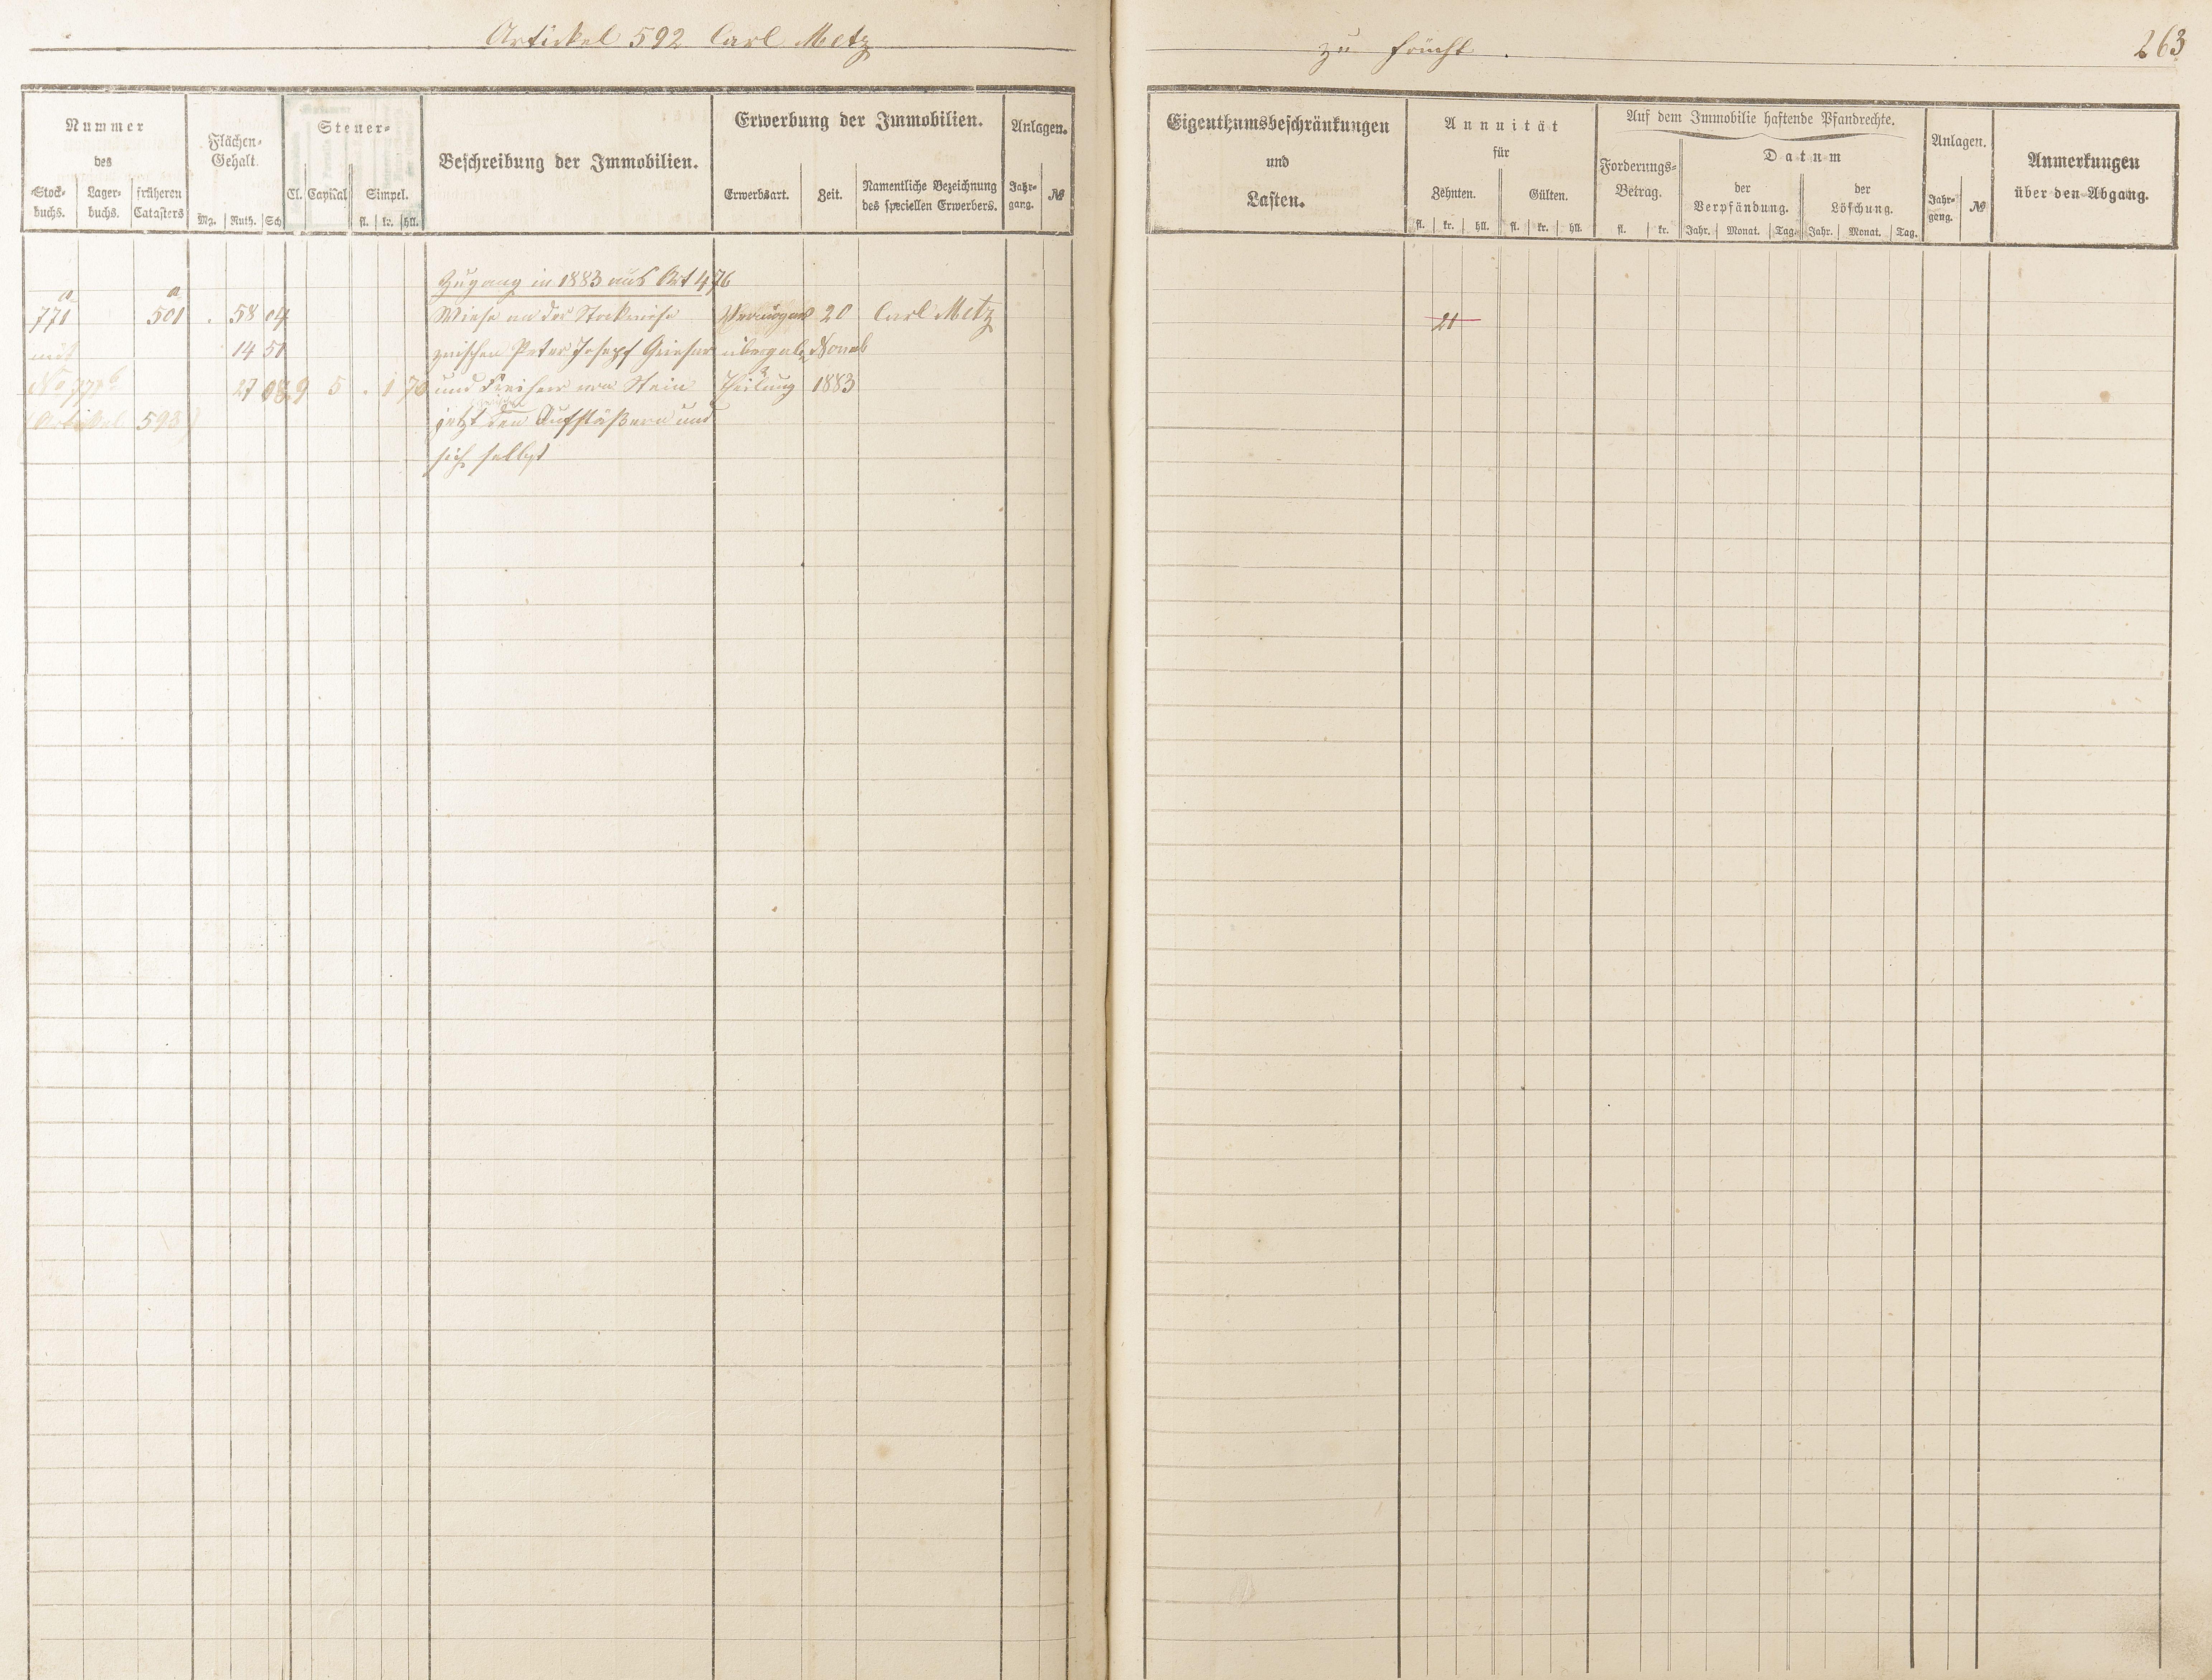 Artickel 592 Carl Metz
zu Frücht.
263
Nummer
des
Stock-
buchs.
Lager-
buchs.
früheren
Catasters
Flächen-
Gehalt.
Mg. Ruth. Sch.
Steuer-
Cl. Capital Simpel.
fl. kr. hll.
Beschreibung der Immobilien.
Erwerbung der Immobilien.
Erwerbsart. Zeit. Namentliche Bezeichnung
des speciellen Erwerbers.
Anlagen.
Jahr-
gang.
№
Eigenthumsbeschränkungen
und
Lasten.
Annuität
für
Zehnten. Gülten.
fl. kr. hll. fl. kr. hll.
Auf dem Immobilie haftende Pfandrechte.
Forderungs-
Betrag.
fl. kr.
Datum
der
Verpfändung.
der
Löschung.
Jahr. Monat. Tag. Jahr. Monat. Tag.
Anlagen.
Jahr-
gang.
№
Anmerkungen
über den Abgang.
Zugang in 1883 aus Art 476
a a
771 501 . 58 04 Wiese in der Stockwiese 20 Carl Metz 21
mit 14 51 zwischen Peter Josepf übergab
No 771 b 27 9 5 . 1 70 und Freiherr von Stein Theilung 1883
(Artikel 593) jetzt den Aufstößern und
sich selbst